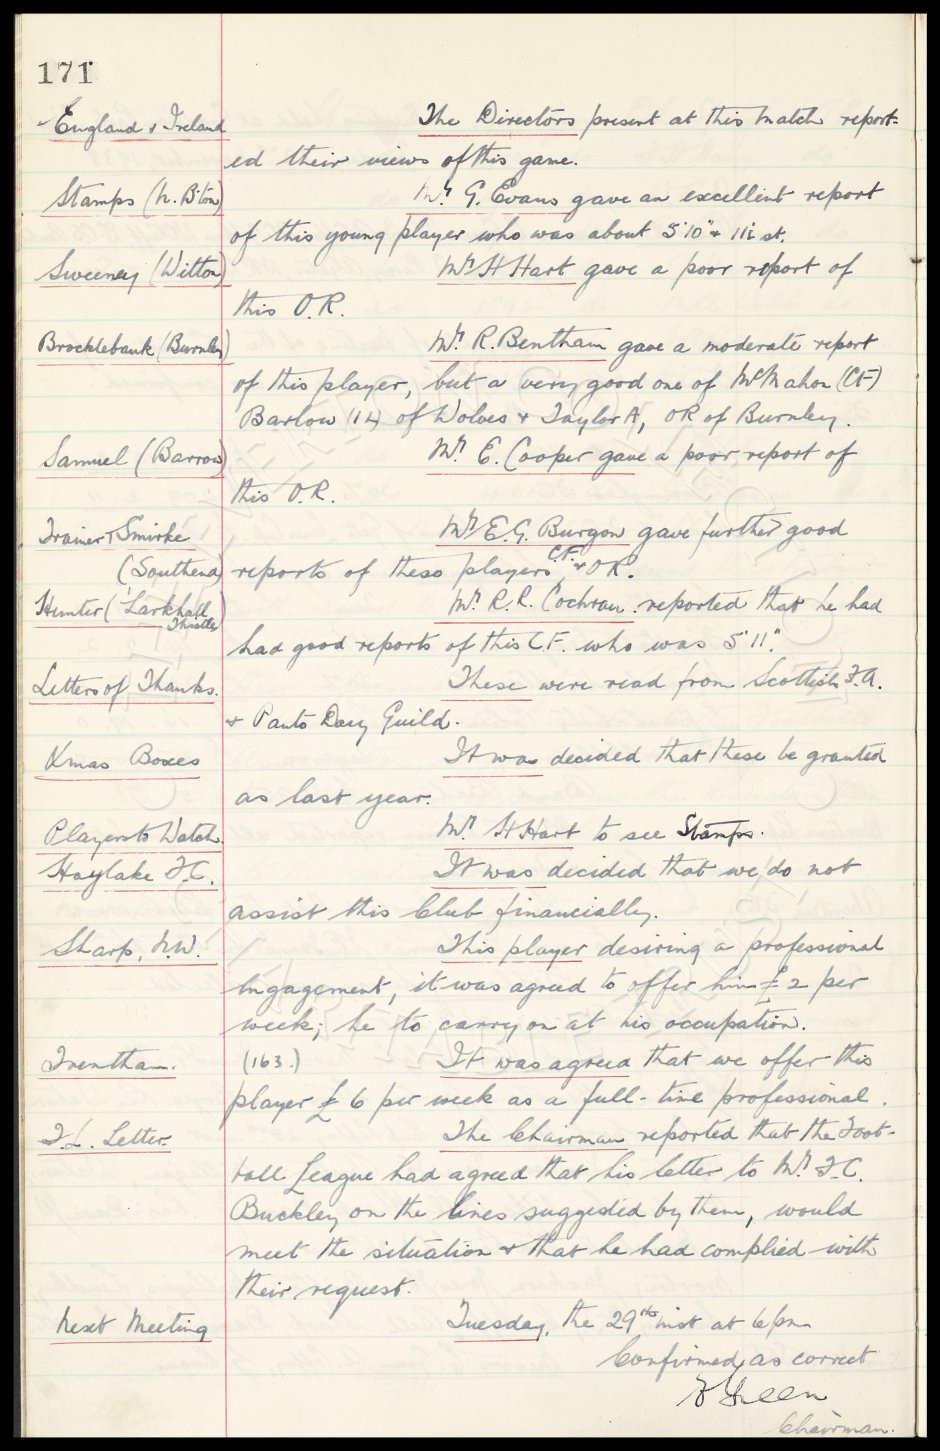 171
England & Ireland The Directors present at this match report-
ed their views of this game.
Stamps (N. B'ton) Mr. G. Evans gave an excellent report
of this young player who was about 5'10" & 11½ st.
Sweeney (Witton) Mr. H Hart gave a poor report of
this O.R.
Brocklebank (Burnley) Mr. R. Bentham gave a moderate report
of this player, but a very good one of McMahon (CF)
Barlow (IL) of Wolves & Taylor A, OR of Burnley.
Samuel (Barrow) Mr. E. Cooper gave a poor report of
this O.R.
Trainer & Smirke Mr. E. G. Burgon gave further good
(Southend) reports of these players C.F. & OR.
Hunter (Larkhall Thistle) Mr. R. R. Cochran reported that he had
had good reports of this C.F. who was 5'11".
Letters of Thanks. These were read from Scottish F.A.
& Guild.
Xmas Boxes It was decided that these be granted
as last year.
Players to Watch. Mr. H Hart to see Stamps.
Hoylake F.C. It was decided that we do not
assist this Club financially.
Sharp, N.W. This player desiring a professional
engagement, it was agreed to offer him £2 per
week; he to carry on at his occupation.
Trentham. (163.) It was agreed that we offer this
player £6 per week as a full-time professional.
F.L. Letter. The Chairman reported that the Foot-
ball League had agreed that his letter to Mr. F.C.
Buckley on the lines suggested by them, would
meet the situation & that he had complied with
their request.
Next Meeting Tuesday, the 29th inst at 6pm
Confirmed as correct
Green
Chairman.